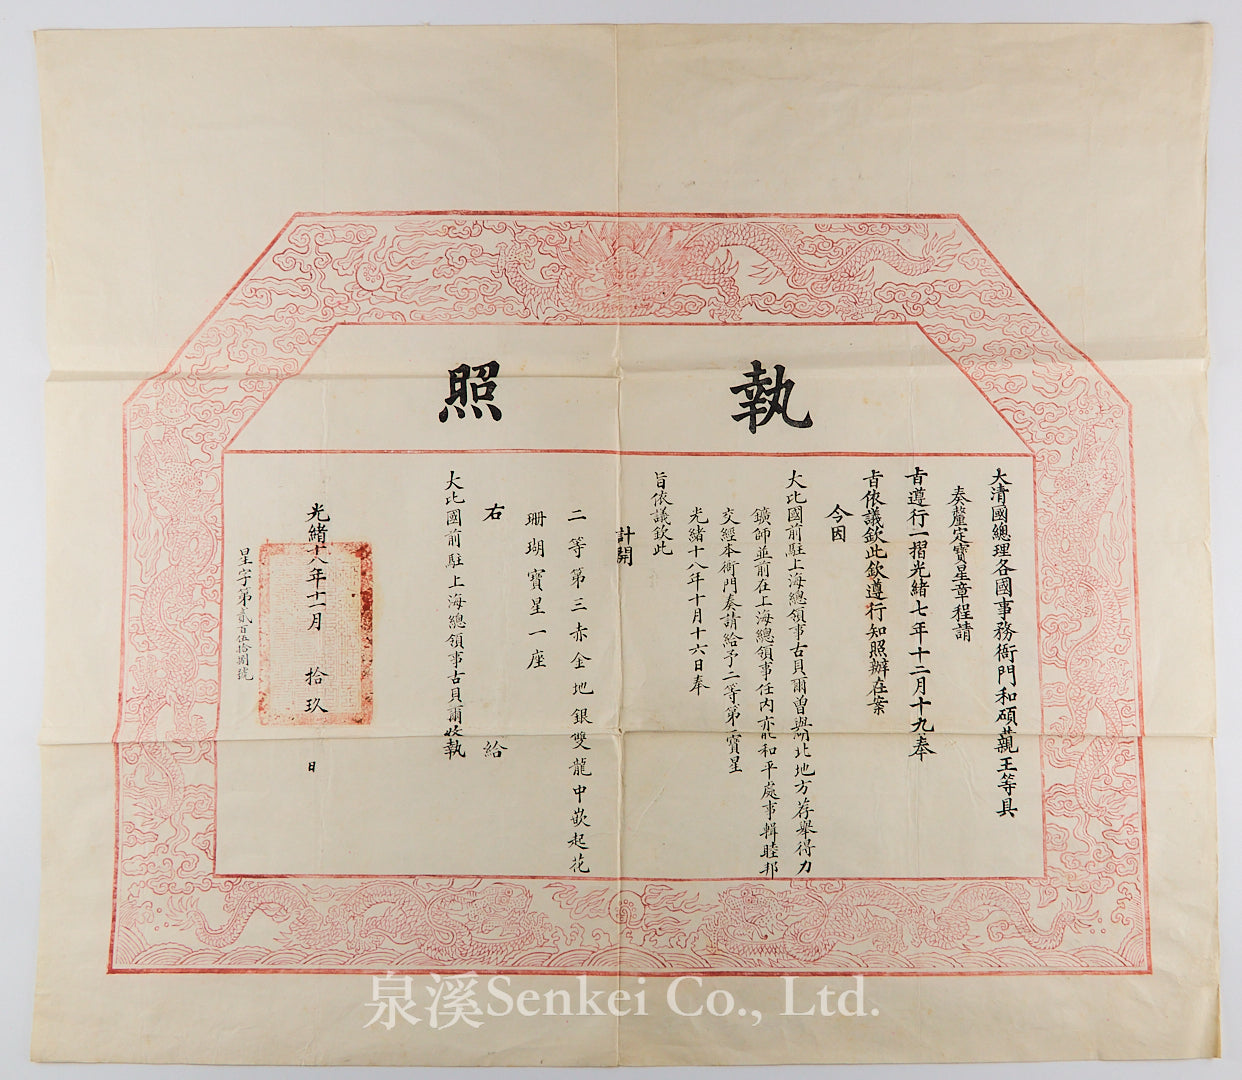 執照
大清國總理各國事務衙門和碩親王等具
奏釐定寶星章程請
旨遵行一摺光緒七年十二月十九奉
旨依議欽此欽遵行知照辦在案
今因
大比國前駐上海總領事古貝爾曾與湖北地方荐舉得力
鑛師並前在上海總領事任內亦能和平處事輯睦邦
交經本衙門奏請給予二等第三寶星
光緒十八年十月十六日奉
旨依議欽此
計開
二等第三赤金地銀雙龍中嵌起花
珊瑚寶星一座
右給
大比國前駐上海總領事古貝爾收執
光緒十八年十一月拾玖日
星字第貳百伍拾捌號
泉溪Senkei Co., Ltd.